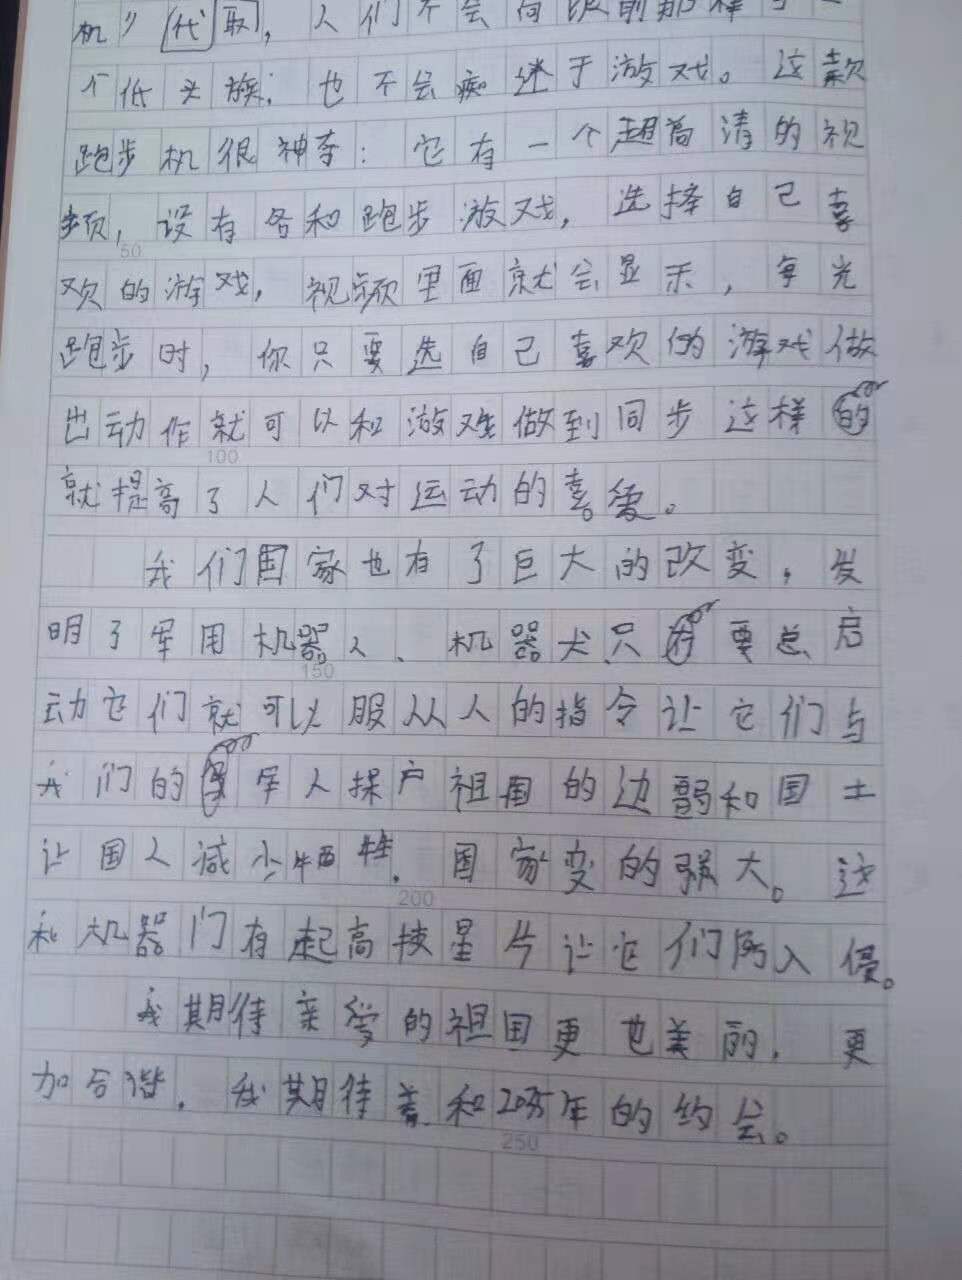 机” 代取，人们不会向以前那样当一
个低头族；也不会痴迷于游戏。这款
跑步机很神奇：它有一个超高清的视
频，设有各和跑步游戏，选择自己喜
50
欢的游戏，视频里面就会显示，每光
跑步时，你只要选自己喜欢的游戏做
出动作就可以和游戏做到同步这样的
100
就提高了人们对运动的喜爱。
我们国家也有了巨大的改变，发
明了军用机器人、机器犬只要总启
150
动它们就可以服从人的指令让它们与
我们的军人保户祖国的边疆和国土
让国人减少牺牲，国家变的强大。这
200
和机器们有起高技星片让它们防入侵。
我期待亲爱的祖国更也美丽，更
加合谐，我期待着和2035年的约会。
250